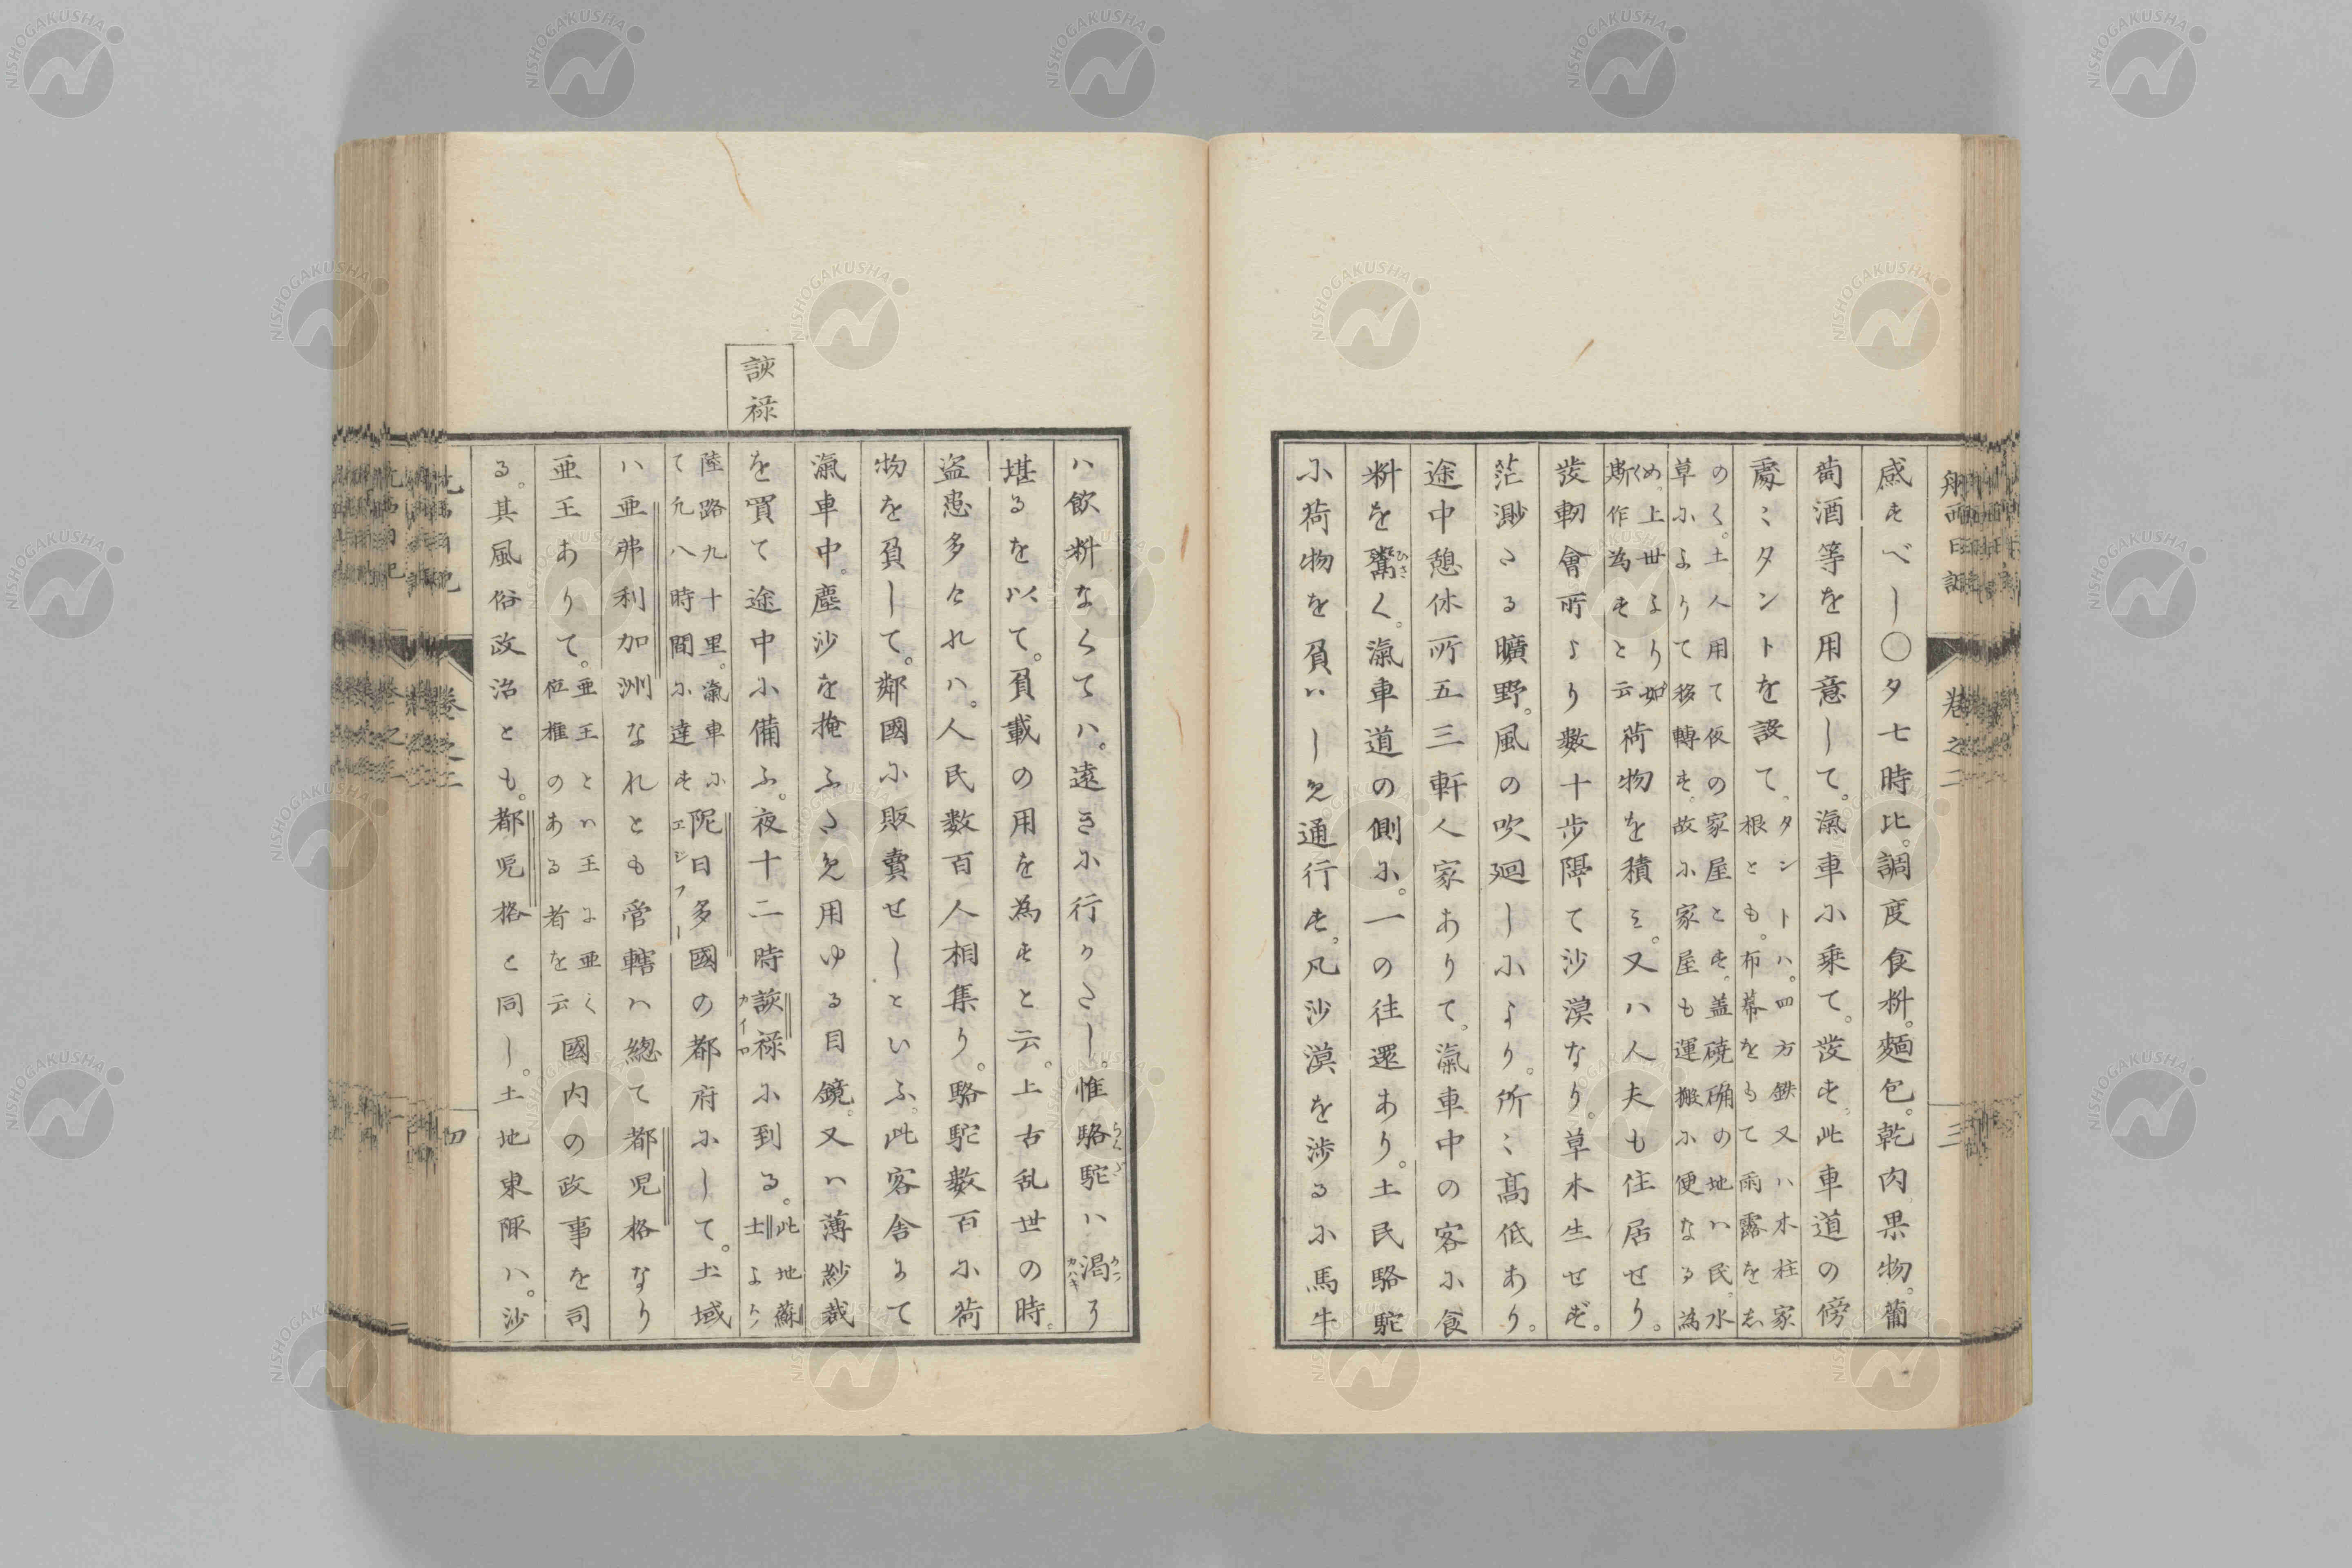 感すべし〇夕七時比。調度食料。麺包。乾肉。果物。葡
萄酒等を用意して。滊車に乗て。發す。此車道の傍
處〻タントを設て、タントハ。四方鉄又ハ木柱家
根とも。布幕をもて雨露を志
のく。土人用て仮の家屋とす。蓋磽确の地ハ民、水
草によりて移轉す。故に家屋も運搬に便なる為
め、上世より如
斯作為すと云荷物を積ミ。又ハ人夫も住居せり。
發軔會所より數十歩隔て沙漠なり。草木生せず。
茫渺たる曠野。風の吹廻しにより。所〻髙低あり。
途中憩休所五三軒人家ありて。滊車中の客に食
料を鬻く。滊車道の側に。一の往還あり。土民駱駝
に荷物を負ハしめ通行す。凡沙漠を渉るに馬牛
ハ飲料なくてハ。遠きに行かたし。惟駱駝ハ渇り
堪るを以て。負載の用を為すと云。上古乱世の時。
盗患多けれハ。人民数百人相集り。駱駝數百に荷
物を負して。鄰國に販賣せしといふ。此客舎にて
滊車中。塵沙を掩ふため用ゆる目鏡。又ハ薄紗裁
を買て途中に備ふ。夜十二時謨禄に到る。此地蘇
士より
陸路九十里。滊車に
て凡八時間に達す阨日多國の都府にして。土域
ハ亜弗利加洲なれとも管轄ハ總て都児格なり
亜王ありて。亜王とハ王に亜く
位権のある者を云國内の政事を司
る。其風俗政治とも。都児格と同し。土地東陬ハ。沙
航西日記
巻之二
三
四
カイロ
エジフー
ひさ
らくだ
カハキ